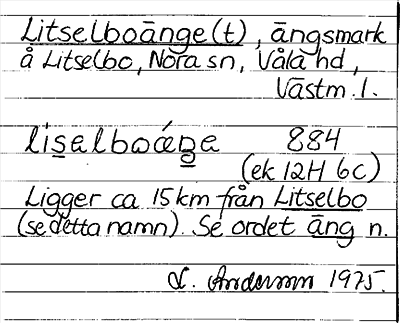 Litselboänge(t), ängsmark
å Litselbo, Nora sn, Våla hd,
Västm. l.
liselboáŋe 884
(ek 12H 6c)
Ligger ca 15 km från Litselbo
(se detta namn). Se ordet äng n.
L. Andersson 1975.